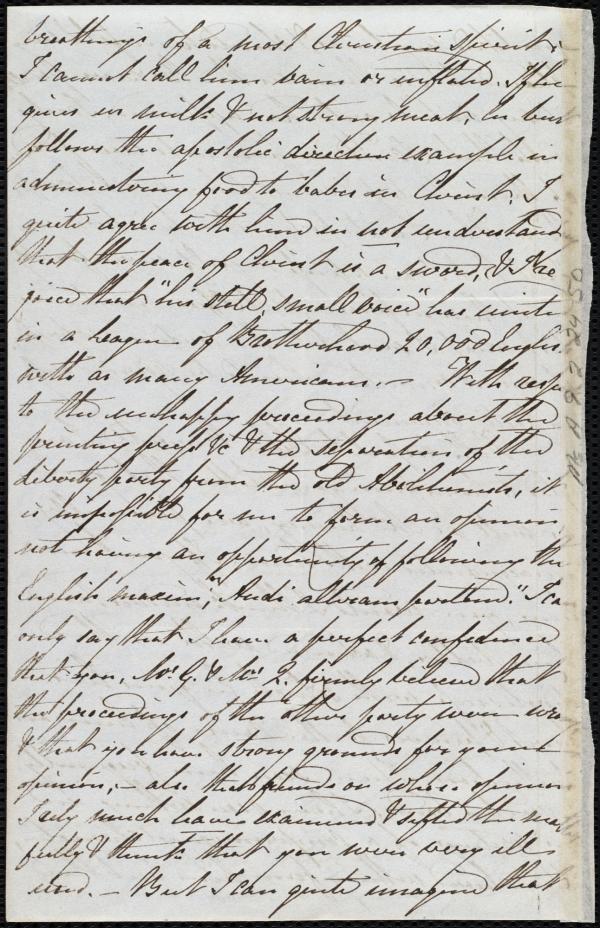 breathings of a most Christian spirit &
I cannot call him vain or inflated. If he
gives us milk & not strong meat, he but
follows the apostolic direction & example in
administering food to babes in Christ. I
quite agree with him in not understand
that the peace of Christ is a sword, & I re
joice that "his still, small voice" has unite
in a league of Brotherhood 20,000 Englis
with as many Americans. — With resp
to the unhappy proceedings about the
printing press &c & the separation of the
liberty party from the old Abolitionists, it
is impossible for me to form an opinion
not having an opportunity of following the
English maxim, "Audi alteram partem." I ca
only say that I have a perfect confidence
that you, Mr. G. & Mr. Q. firmly believe that
the proceedings of the other party were wro
& that you have strong grounds for your
opinion, — also that friends on whose opinion
I rely much have examined & sifted the mat
fully & think that you were very ill
used. — But I can quite imagine that
Ms A 9 2 24 50